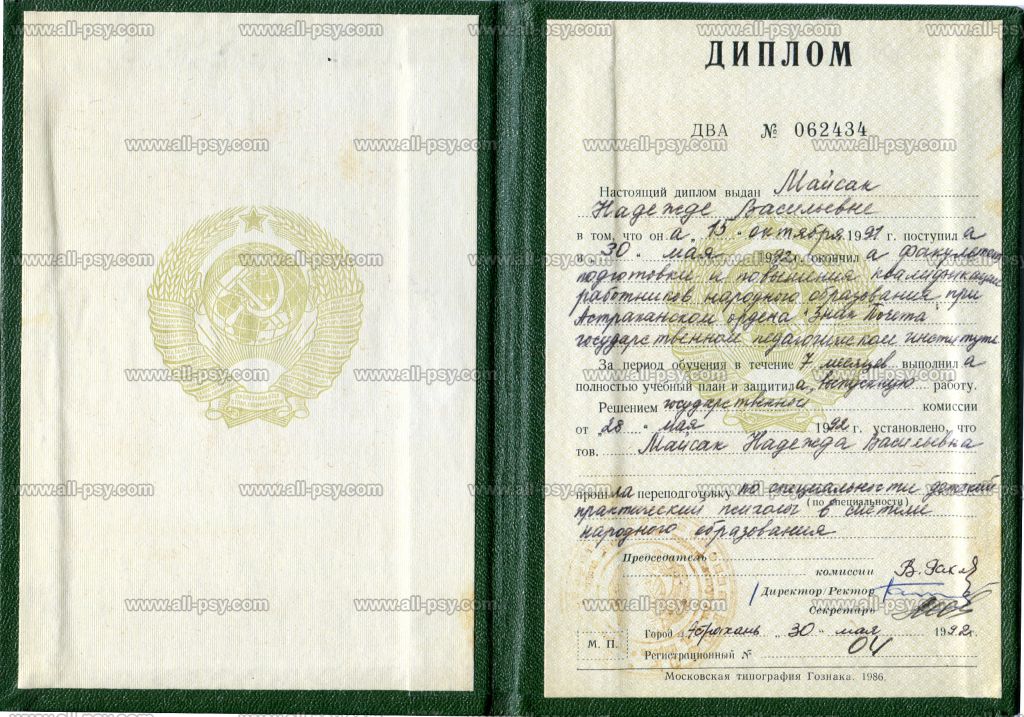 ДИПЛОМ
ДВА № 062434
Настоящий диплом выдан Майсак
Надежде Васильевне
в том, что он а „15“ октября 1991 г. поступил а
в „30“ мая 1992 г. окончил а факультет
подготовки и повышения квалификации
работников народного образования при
Астраханском ордена "Знак Почета"
государственном педагогическом институте
За период обучения в течение 7 месяцев выполнил а
полностью учебный план и защитил а выпускную работу.
Решением государственной комиссии
от „28“ мая 1992 г. установлено, что
тов. Майсак Надежда Васильевна
прошла переподготовку по специальности детский
(по специальности)
практический психолог в системе
народного образования
Председатель
комиссии
Директор/Ректор
Секретарь
М. П.
Город Астрахань „30“ мая 1992 г.
Регистрационный № 04
Московская типография Гознака. 1986.
www.all-psy.com